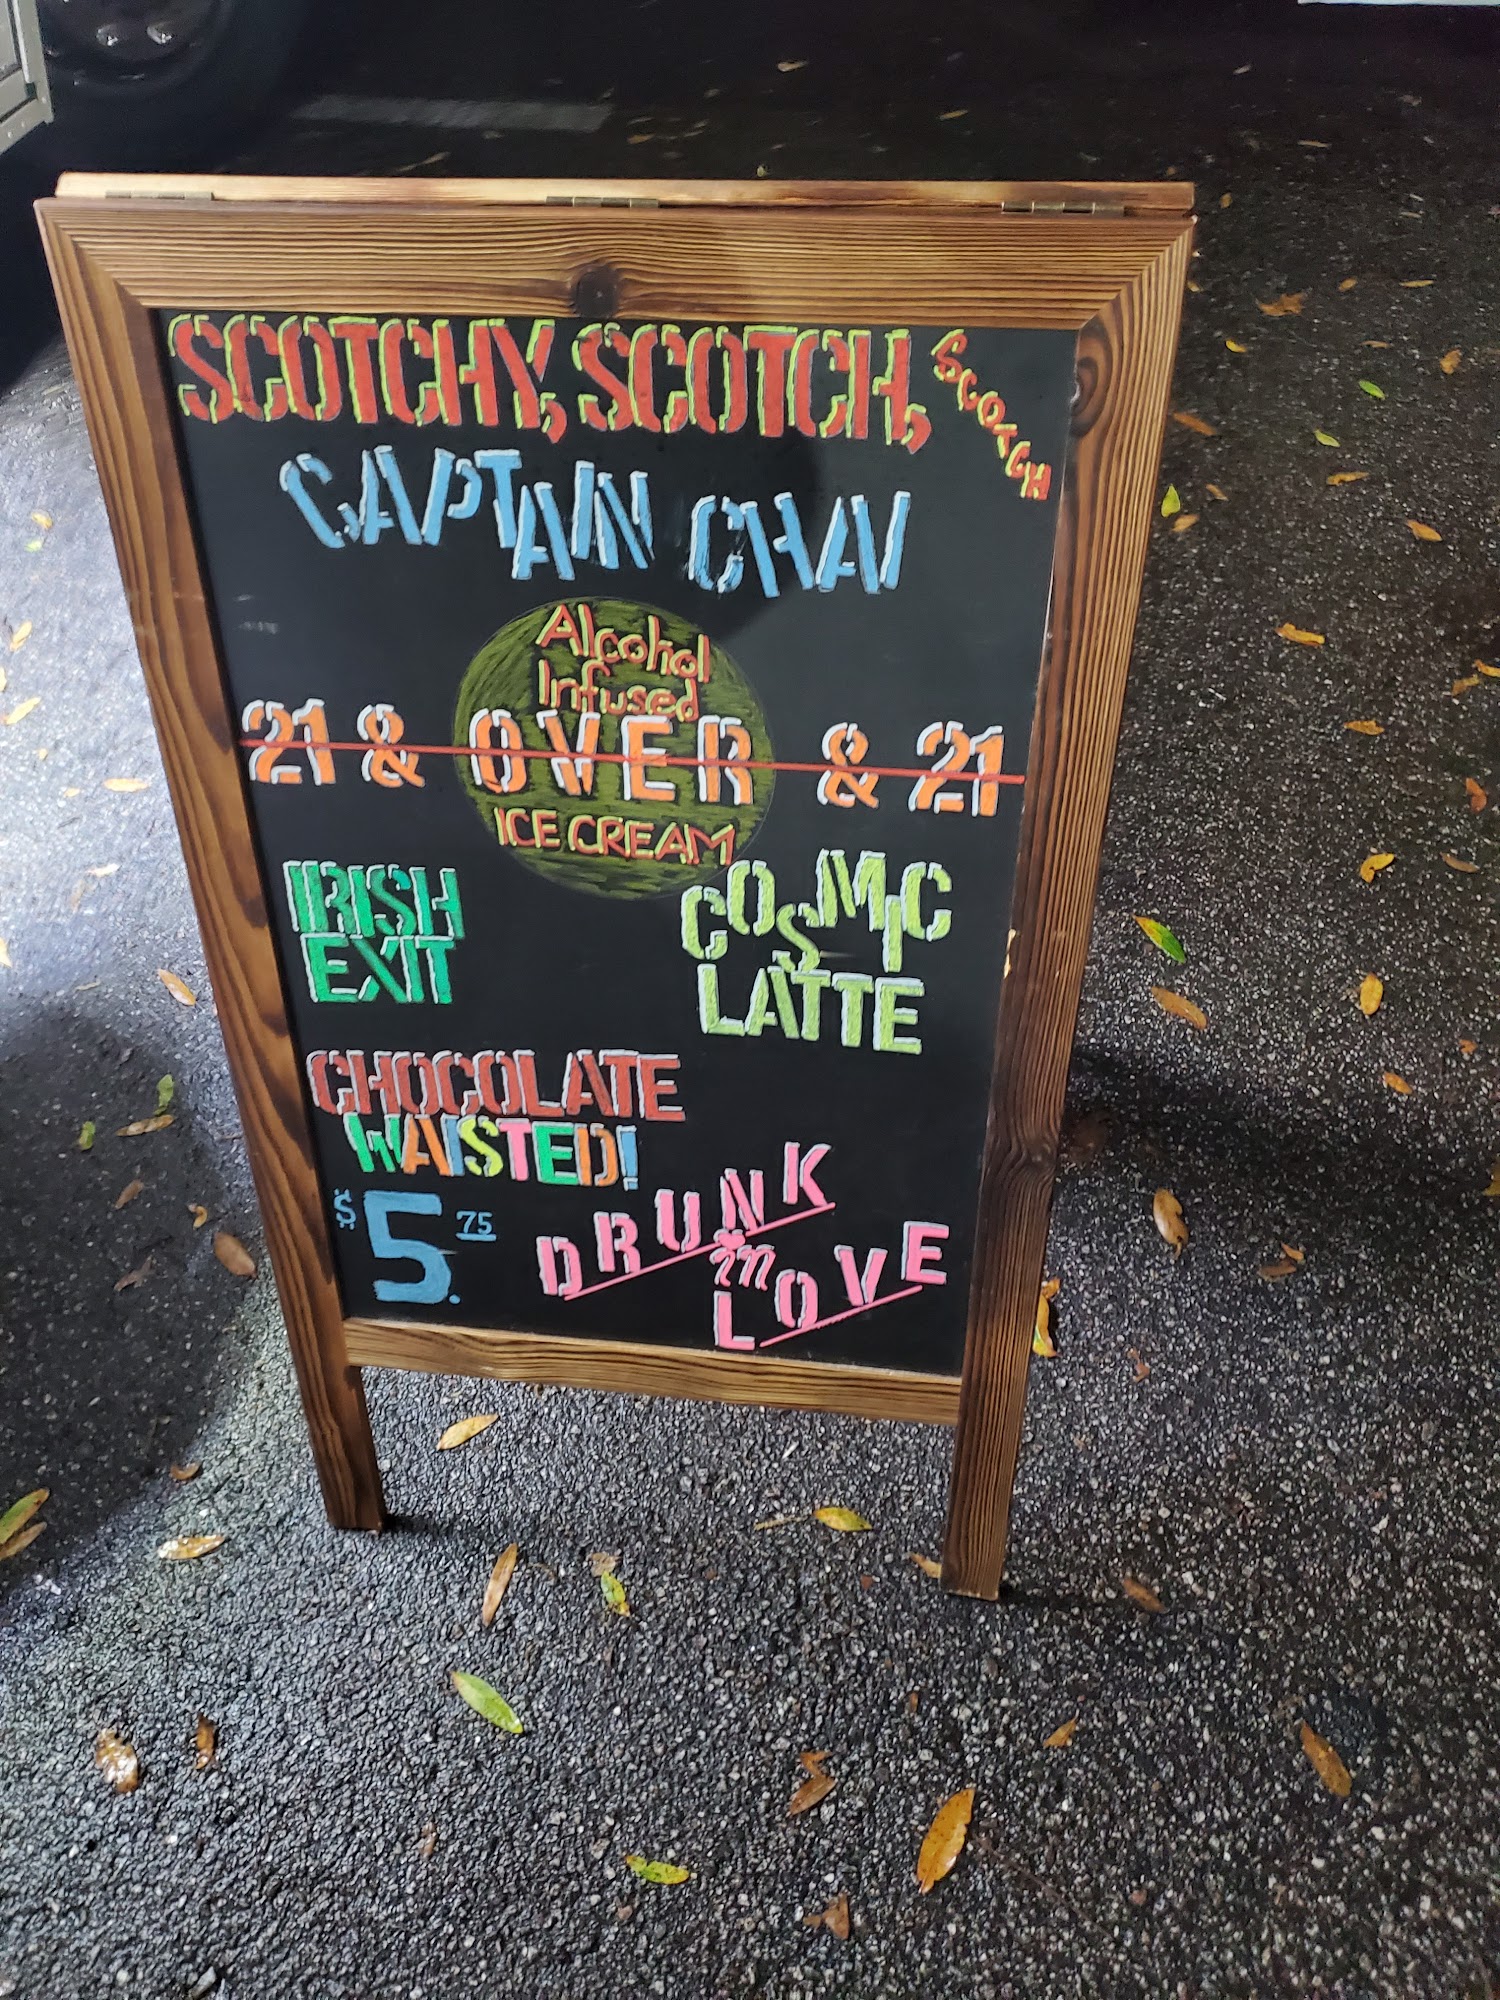 SCOTCHY, SCOTCH, SCOTCH
CAPTAIN CHAI
Alcohol
Infused
21 & OVER & 21
ICE CREAM
IRISH
EXIT
COSMIC
LATTE
CHOCOLATE
WAISTED!
$5.75
DRUNK
in
LOVE